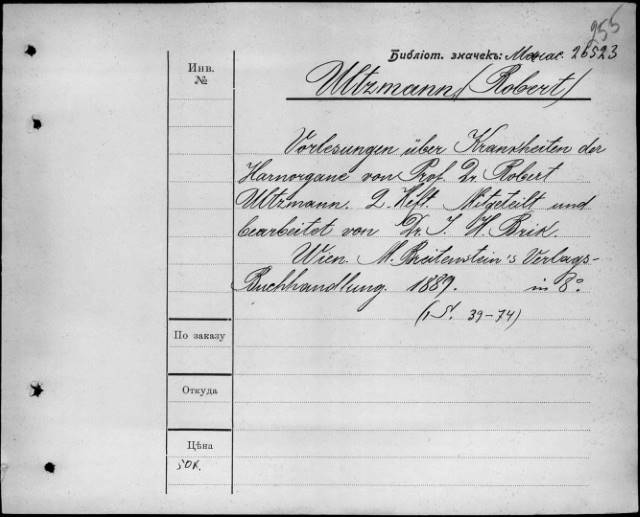 255
Библіот. значекъ: 26523
Инв.
№
Ultzmann (Robert)
Vorlesungen über Krankheiten der
Harnorgane von Prof. Dr. Robert
Ultzmann. 2. Heft. Mitgeteilt und
bearbeitet von Dr. J. H. Brik.
Wien. M. Breitenstein's Verlags-
Buchhandlung. 1889. in 8º
(S. 39-74)
По заказу
Откуда
Цѣна
50к.